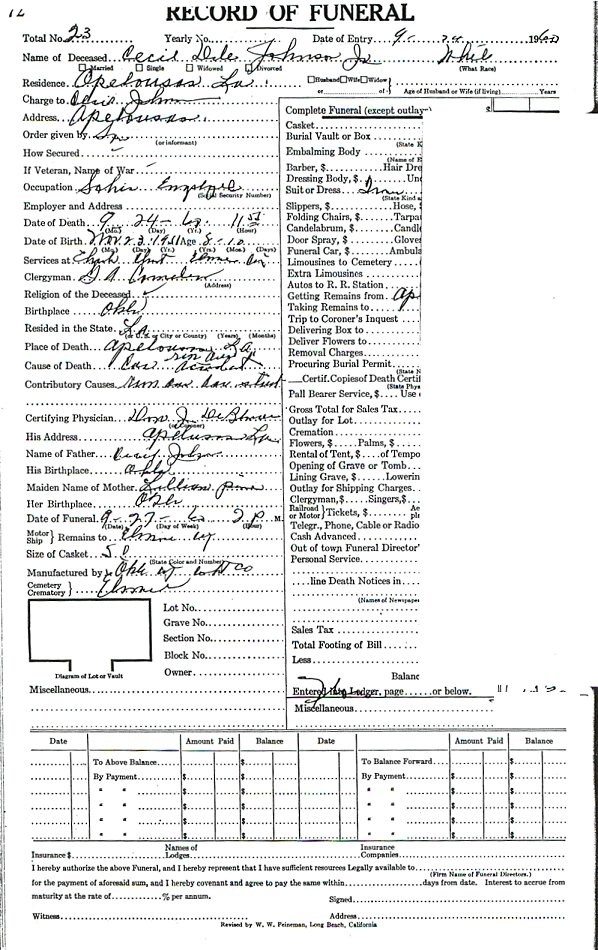 12
RECORD OF FUNERAL
Total No. 23 Yearly No. Date of Entry 9- 1960
Name of Deceased Cecil Dale Johnson Jr White
Married Single Widowed Divorced (What Race)
Residence Opelousas La Husband Wife Widow
or of Age of Husband or Wife (if living) Years
Charge to Cecil Johnson
Address Opelousas
Order given by
(or informant)
How Secured
If Veteran, Name of War
Occupation Employee
(Social Security Number)
Employer and Address
Date of Death 9 24- 60 11
(Mo.) (Day) (Yr.) (Hour)
Date of Birth Nov. 23 1951 Age 8- 10
(Mo.) (Day) (Yr.) (Yrs.) (Mos.) (Days)
Services at Church Christ Elmer
Clergyman
(Address)
Religion of the Deceased
Birthplace Okla
Resided in the State La
(or U.S., or City or County) (Years) (Months)
Place of Death Opelousas La
Cause of Death Car accident
Contributory Causes
Certifying Physician Don J.
(or Coroner)
His Address Opelousas La
Name of Father Cecil Johnson
His Birthplace Okla
Maiden Name of Mother Lillian
Her Birthplace Okla
Date of Funeral 9- 27- 60 2 P M.
(Date) (Day of Week) (Hour)
Motor Ship Remains to Elmer
Size of Casket 5 0
(State Color and Number)
Manufactured by Okla Co
Cemetery Crematory Elmer
Lot No.
Grave No.
Section No.
Block No.
Owner
Diagram of Lot or Vault
Miscellaneous
Complete Funeral (except outlay $
Casket
Burial Vault or Box
(State K
Embalming Body
(Name of E
Barber, $ Hair Dre
Dressing Body, $ Un
Suit or Dress
(State Kind a
Slippers, $ Hose,
Folding Chairs, $ Tarpa
Candelabrum, $ Candl
Door Spray, $ Glove
Funeral Car, $ Ambul
Limousines to Cemetery
Extra Limousines
Autos to R. R. Station
Getting Remains from Op
Taking Remains to
Trip to Coroner's Inquest
Delivering Box to
Deliver Flowers to
Removal Charges
Procuring Burial Permit
(State N
Certif. Copies of Death Certif
(State Phys
Pall Bearer Service, $ Use
Gross Total for Sales Tax
Outlay for Lot
Cremation
Flowers, $ Palms, $
Rental of Tent, $ of Tempo
Opening of Grave or Tomb
Lining Grave, $ Lowerin
Outlay for Shipping Charges
Clergyman, $ Singers, $
Railroad or Motor Tickets, $ Ae pl
Telegr., Phone, Cable or Radio
Cash Advanced
Out of town Funeral Director'
Personal Service
line Death Notices in
(Names of Newspape
Sales Tax
Total Footing of Bill
Less
Balanc
Entered into Ledger, page or below.
Miscellaneous
Date Amount Paid Balance Date Amount Paid Balance
To Above Balance $ To Balance Forward $
By Payment $ By Payment $
" " $ " " $
" " $ " " $
" " $ " " $
" " $ " " $
Insurance $ Names of Lodges Insurance Companies
I hereby authorize the above Funeral, and I hereby represent that I have sufficient resources Legally available to
(Firm Name of Funeral Directors.)
for the payment of aforesaid sum, and I hereby covenant and agree to pay the same within days from date. Interest to accrue from
maturity at the rate of % per annum. Signed
Witness Address
Revised by W. W. Peineman, Long Beach, California